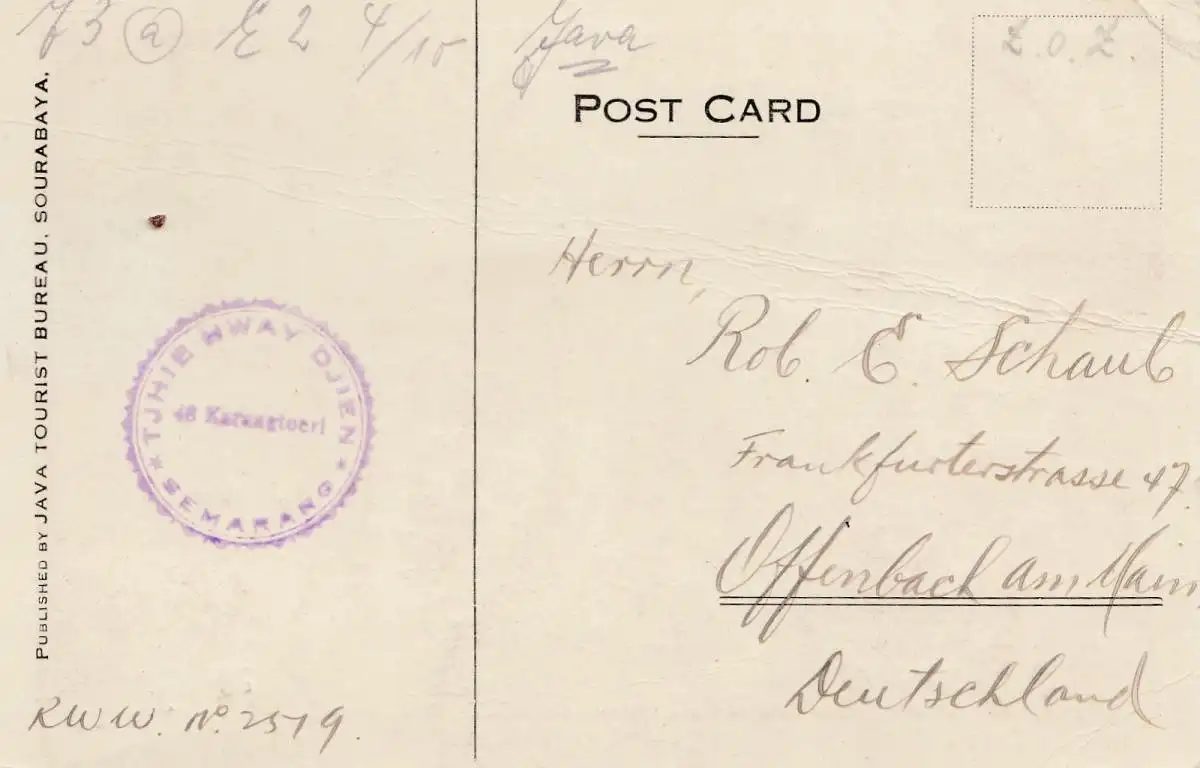 J3 (a) E2 4/15
Java
Z.O.Z.
POST CARD
PUBLISHED BY JAVA TOURIST BUREAU, SOURABAYA.
TJHIE HWAY DJIEN
48 Karangtoeri
* SEMARANG *
Herrn,
Rob. E. Schaub
Frankfurterstrasse 47.
Offenbach am Main
Deutschland
RWW. No. 2519.